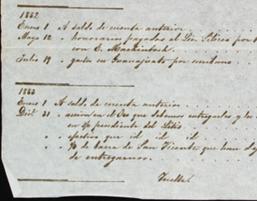 1882
Enero 1 A saldo de cuenta anterior
Mayo 12 " honorarios pagados al Lin
con E. Mackintosh
Julio 19 " gasto en Guanajuato por
1883
Enero 1 A saldo de cuenta anterior
Dicb. 31 " que debemos entregarles y
en pendiente del
" efectivo que id id id
" de barra de San Vicente que han
de entregarnos.
Vuelta